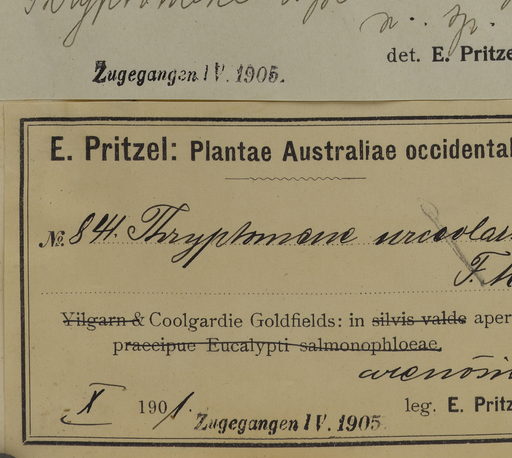 Thryptomene
n. sp.
det. E. Pritze
Zugegangen IV. 1905.
E. Pritzel: Plantae Australiae occidental
№ 841. Thryptomene urceolar
F. M
Yilgarn & Coolgardie Goldfields: in silvis valde aper
praecipue Eucalypti salmonophloeae,
arenosi
X 1901. leg. E. Pritz
Zugegangen IV. 1905.